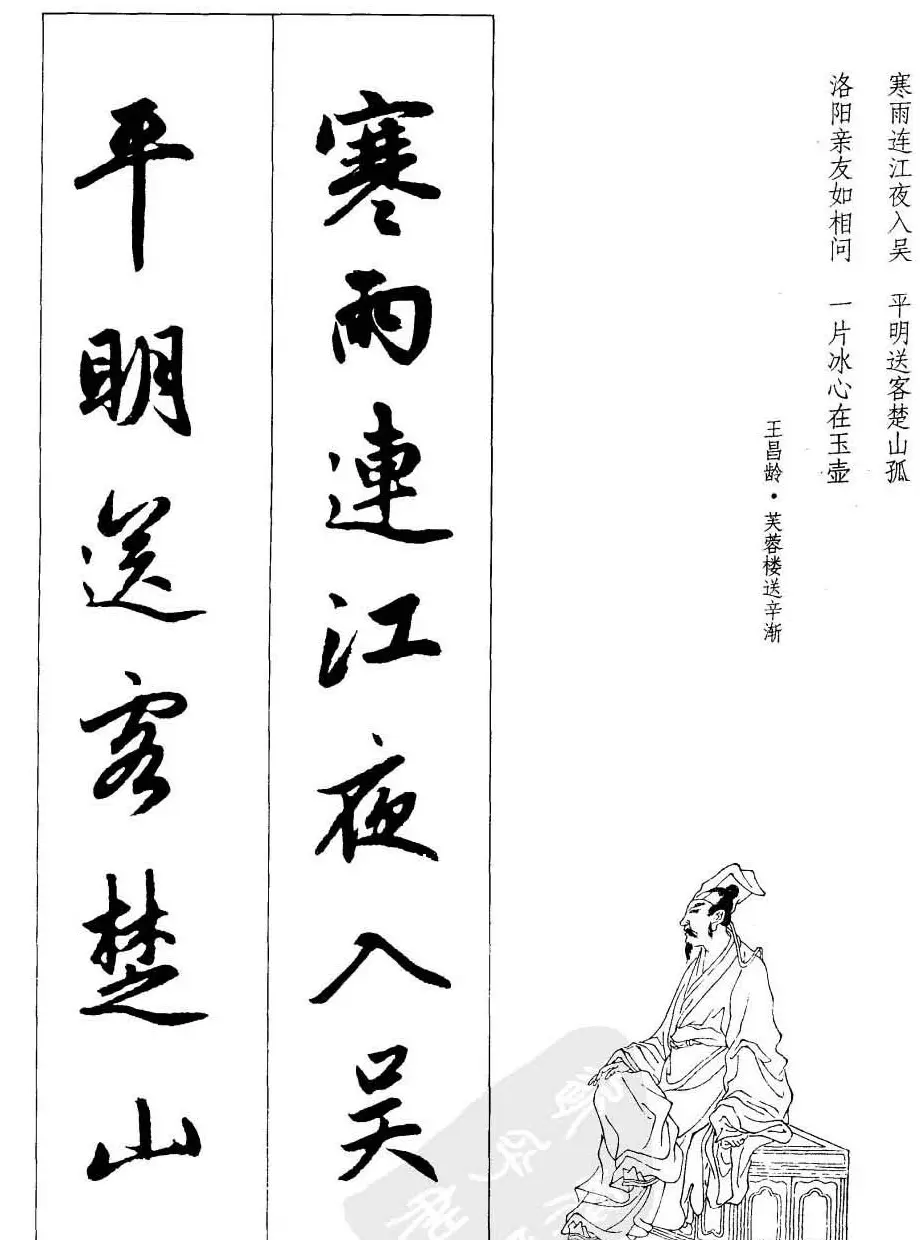 寒雨连江夜入吴 平明送客楚山孤
洛阳亲友如相问 一片冰心在玉壶
王昌龄·芙蓉楼送辛渐
寒雨連江夜入吴
平明送客楚山